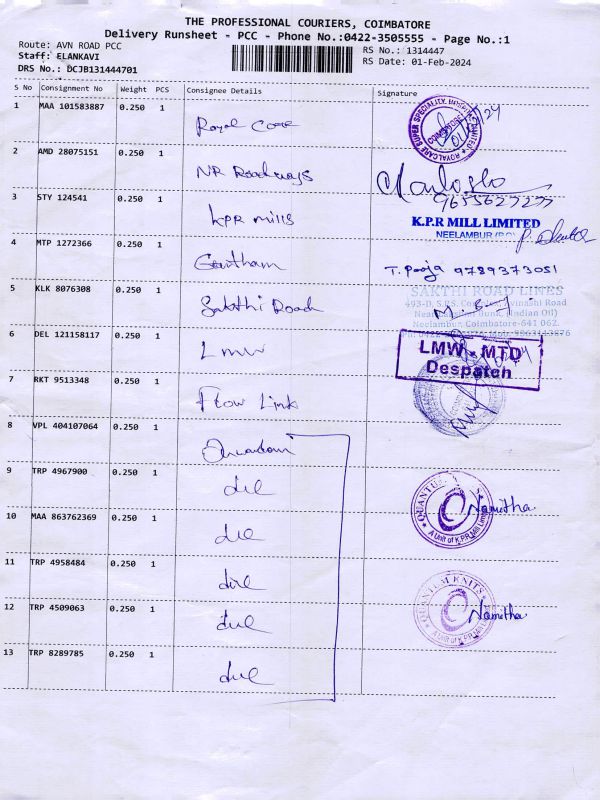 THE PROFESSIONAL COURIERS, COIMBATORE
Delivery Runsheet - PCC - Phone No.:0422-3505555 - Page No.:1
Route: AVN ROAD PCC
Staff: ELANKAVI
DRS No.: DCJB131444701
RS No.: 1314447
RS Date: 01-Feb-2024
S No Consignment No Weight PCS Consignee Details Signature
1 MAA 101583887 0.250 1 Royal Care
2 AMD 28075151 0.250 1 NR Roadways
9655627277
3 STY 124541 0.250 1 KPR mills
K.P.R MILL LIMITED
NEELAMBUR
4 MTP 1272366 0.250 1 Gautham T. Pooja 9789373051
5 KLK 8076308 0.250 1 Sakthi Road
SAKTHI ROAD LINES
493-D, S.P.S.
Neelambur, Coimbatore-641 062.
6 DEL 121158117 0.250 1 LMW
LMW - MTD
Despatch
7 RKT 9513348 0.250 1 Flow Link
8 VPL 404107064 0.250 1
9 TRP 4967900 0.250 1
QUANTUM KNITS
A Unit of K.P.R. Mill Limited
Namitha
10 MAA 863762369 0.250 1
11 TRP 4958484 0.250 1
12 TRP 4509063 0.250 1
QUANTUM KNITS
A Unit of K.P.R. Mill
Namitha
13 TRP 8289785 0.250 1